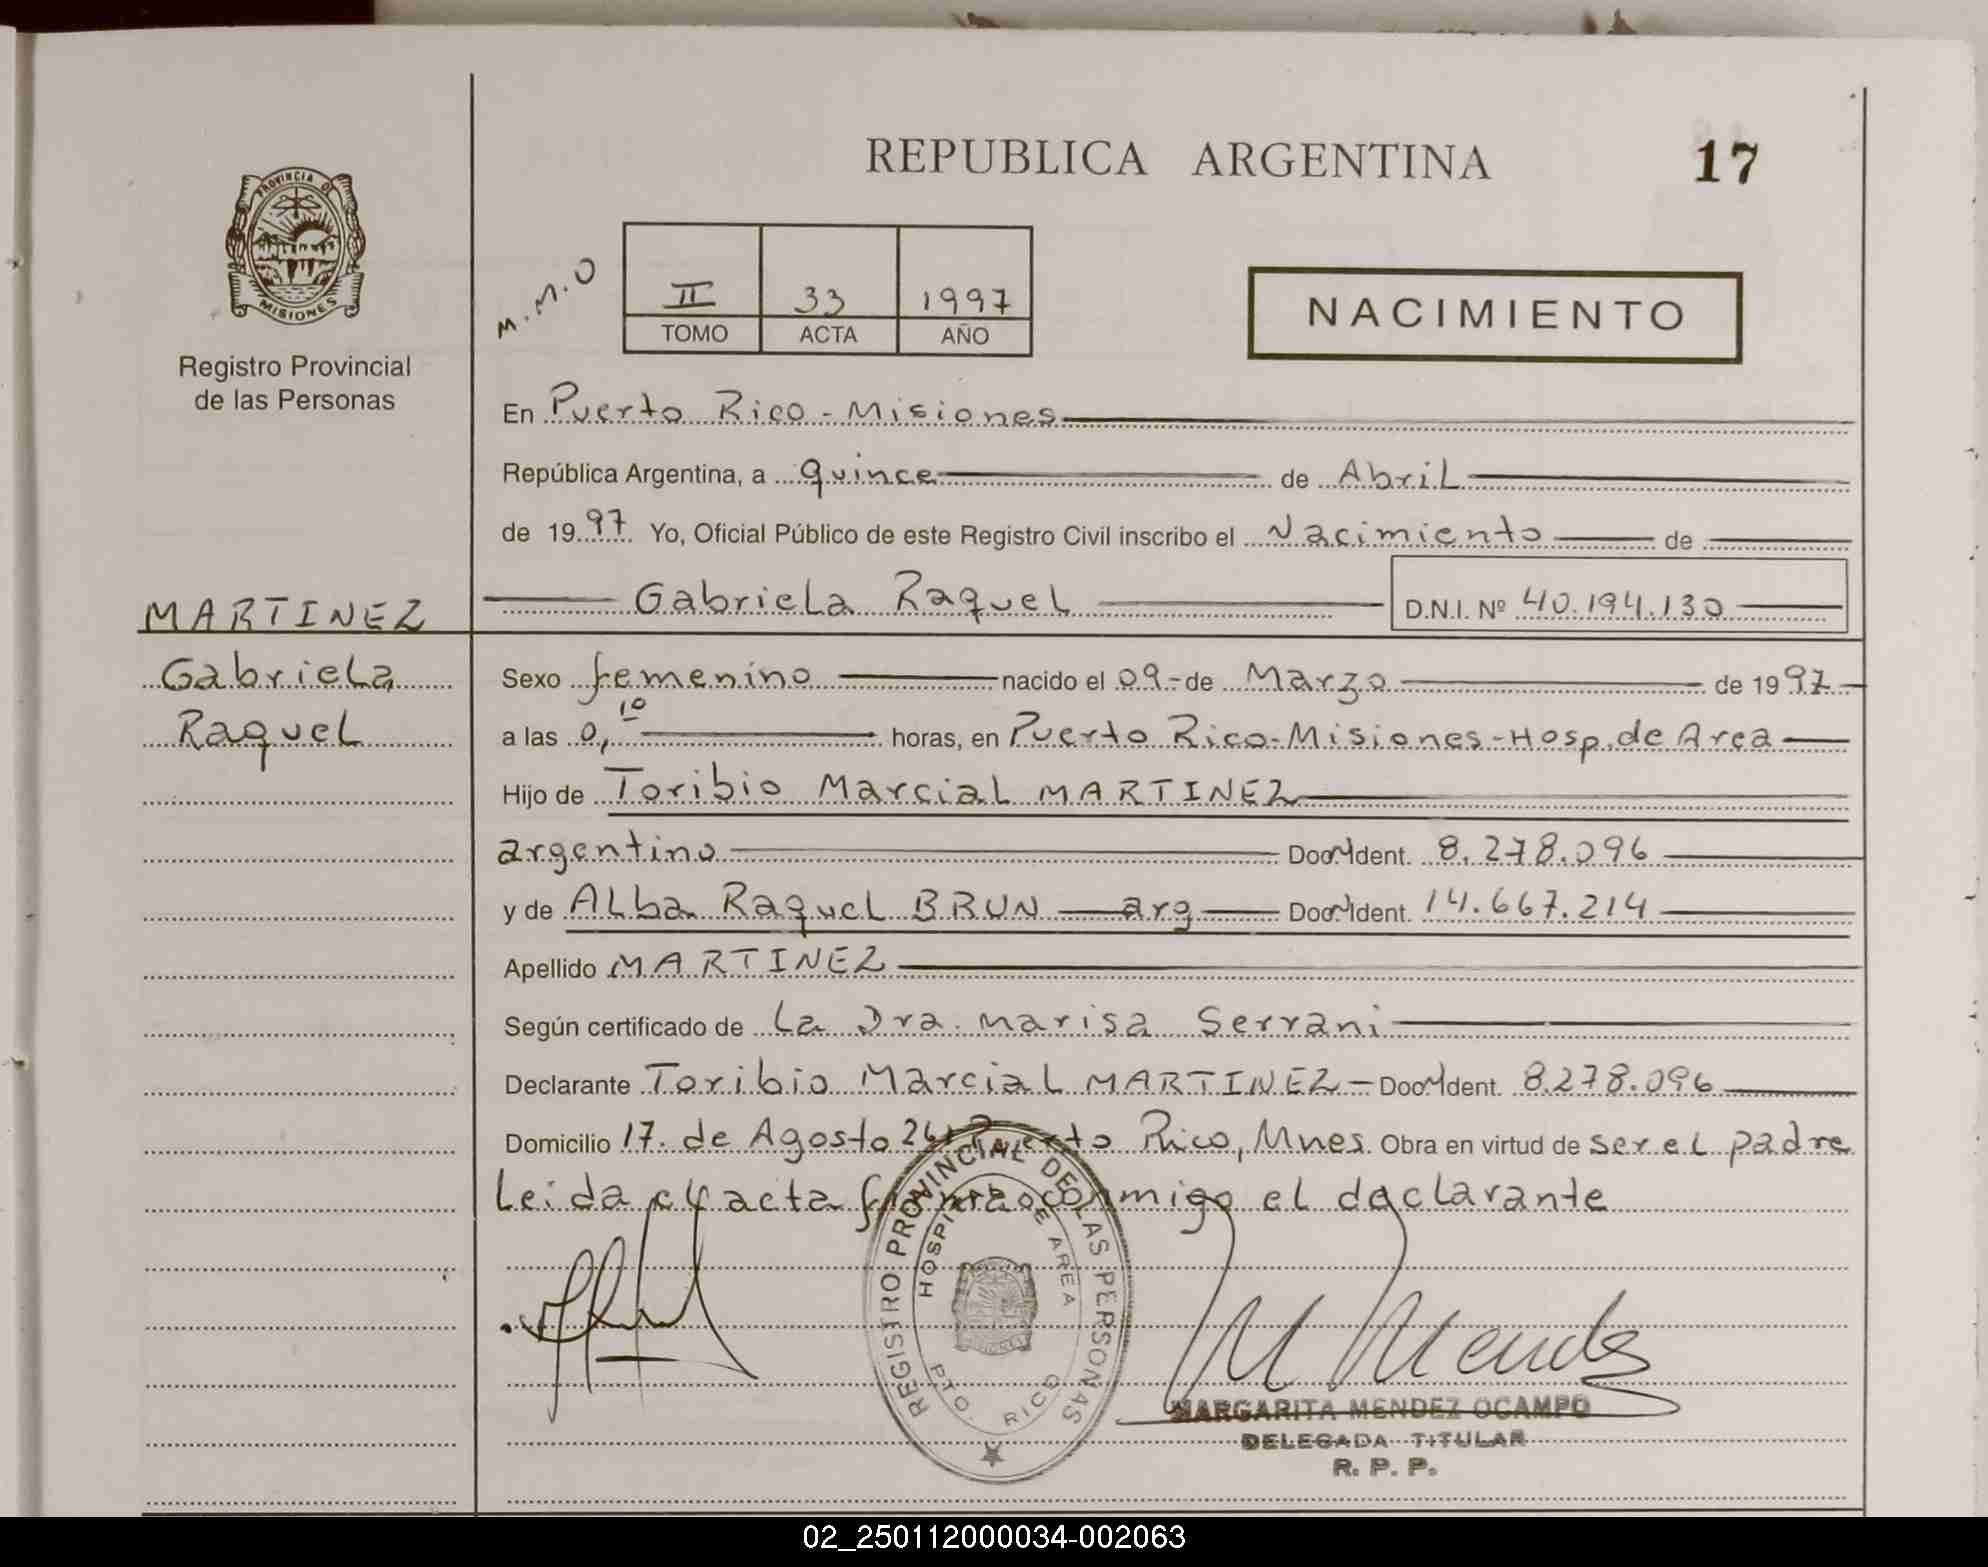 REPUBLICA ARGENTINA
17
PROVINCIA DE
MISIONES
Registro Provincial
de las Personas
M.M.O
II 33 1997
TOMO ACTA AÑO
NACIMIENTO
En Puerto Rico - Misiones
República Argentina, a quince de Abril
de 1997 Yo, Oficial Público de este Registro Civil inscribo el Nacimiento de
Gabriela Raquel D.N.I. Nº 40.194.130
MARTINEZ
Gabriela
Raquel
Sexo femenino nacido el 09 - de Marzo de 1997
a las 0,10 horas, en Puerto Rico - Misiones - Hosp. de Area
Hijo de Toribio Marcial MARTINEZ
argentino Doc. Ident. 8.278.096
y de Alba Raquel BRUN arg Doc. Ident. 14.667.214
Apellido MARTINEZ
Según certificado de La Dra. Marisa Serrani
Declarante Toribio Marcial MARTINEZ - Doc. Ident. 8.278.096
Domicilio 17. de Agosto Puerto Rico, Mnes. Obra en virtud de ser el padre
Leida el acta firma conmigo el declarante
REGISTRO PROVINCIAL DE LAS PERSONAS
HOSPITAL DE AREA
PTO. RICO
M Mendez
MARGARITA MENDEZ OCAMPO
DELEGADA TITULAR
R. P. P.
02_250112000034-002063